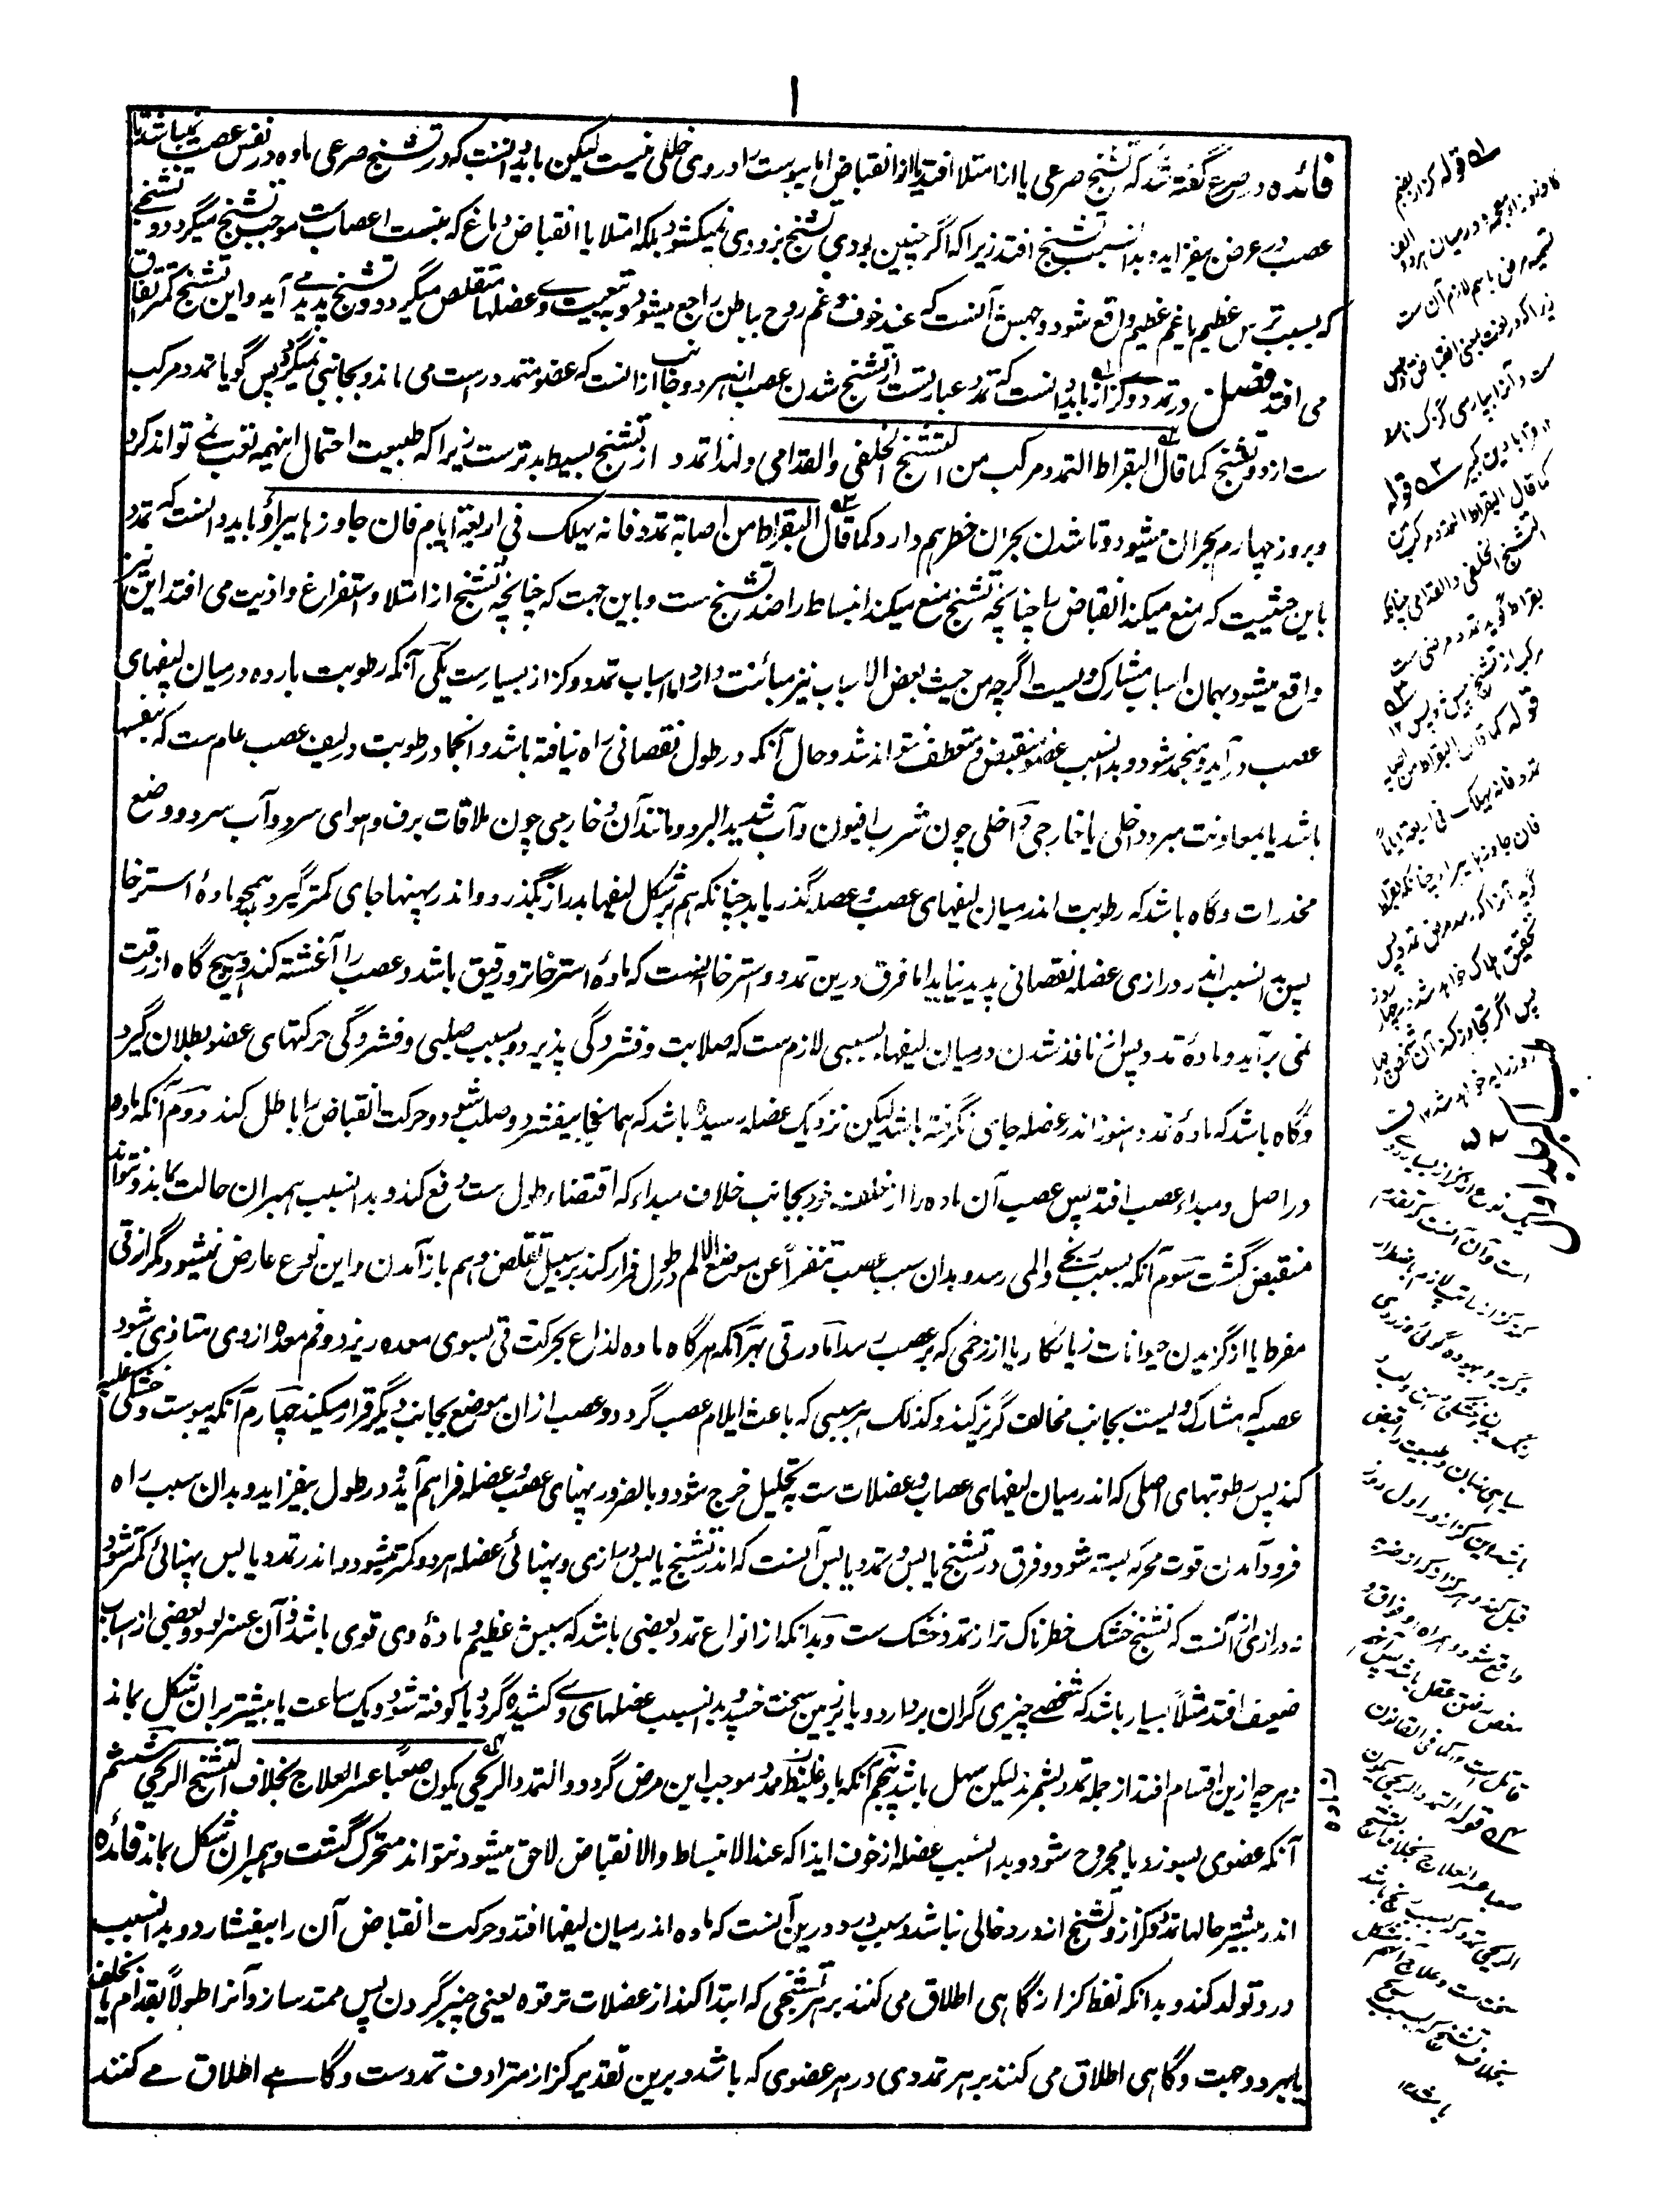 ۱
فائده در صرع گفته شد که تشنج صرعی یا از امتلا افتد یا از انقباض اما یبوست را در وی خللی نیست لیکن باید دانست که در تشنج صرعی ماده در نفس عصب نمیباشد تا
عصب در عرض بیفزاید و بدانسبب تشنج افتد زیرا که اگر چنین بودی تشنج بزودی نمیکشود بلکه امتلا یا انقباض دماغ که منبت اعصاب ست موجب تشنج میگردد و تشنجے
که بسبب ترس عظیم یا غم عظیم واقع شود وجهش آنست که عند خوف و غم روح بباطن راجع میشود و به تبعیت وے عضلها متقلص میگردد و تشنج پدید مے آید و این تشنج کمتر اتفاق
می افتد فصل در تمدد و کزاز باید دانست که تمدد عبارتست از تشنج شدن عصب از هر دو جانب ازانست که عضو متمدد راست می ماند و بجانبی نمیگردد پس گویا تمدد مرکب
ست از دو تشنج کما قال البقراط التمدد مرکب من التشنج الخلفی والقدامی ولهذا تمدد از تشنج بسیط بدترست زیرا که طبیعت احتمال اینهمه تعب نمے تواند کرد
و بروز چهارم بحران میشود و تا شدن بحران خطر هم دارد کما قال البقراط من اصابه تمدد فانه یهلک فی اربعة ایام فان جاوزها یبرأ و باید دانست که تمدد
باین حیثیت که منع میکند انقباض را چنانچه تشنج منع میکند انبساط را ضد تشنج ست و باین جهت که چنانچه تشنج از امتلا و استفراغ و اذیت می افتد این نیز
واقع میشود بهمان اسباب مشارک ویست اگرچه من حیث بعض الاسباب نیز مبائنت دارد اما اسباب تمدد و کزاز بسیارست یکی آنکه رطوبت بارده در میان لیفهای
عصب در آید و منجمد شود و بدانسبب عضو منقبض و منعطف نتواند شد و حال آنکه در طول نقصانی راه نیافته باشد و انجماد رطوبت در لیف عصب عام ست که بنفسها
باشد یا بمعاونت مبرد داخلی یا خارجی داخلی چون شرب افیون و آب شدید البرد و مانند آن و خارجی چون ملاقات برف و هوای سرد و آب سرد و وضع
مخدرات و گاه باشد که رطوبت اندر میان لیفهای عصب و عضله گذر یابد چنانکه هم بر شکل لیفها بدرازی بگذرد و اندر پهنها جای کمتر گیرد همچو ماده استرخا
پس بدانسبب اندر درازی عضله نقصانی پدید نیاید اما فرق درین تمدد و استرخا آنست که ماده استرخا تر و رقیق باشد و عصب را آغشته کند و هیچ گاه از رقت
نمی برآید و ماده تمدد پس از نافذ شدن در میان لیفها بسببی لازم ست که صلابت و فشردگی پذیرد و بسبب صلبی و فشردگی حرکتهای عضو بطلان گیرد
و گاه باشد که ماده تمدد هنوز اندر عضله جای نگرفته باشد لیکن نزدیک عضله رسیده باشد که همانجا بیفشرد و صلب شود و حرکت انقباض را باطل کند دوم آنکه ماده
در اصل و مبداء عصب افتد پس عصب آن ماده را از خود بجانب خلاف مبداء که اقتضاء طول ست دفع کند و بدانسبب همبران حالت بماند و نتواند
منقبض گشت سوم آنکه بسبب رنجے و المی رسد و بدان سبب عصب تنفراً عن موضع الالم در طول فرار کند بر سبیل تقلص و هم باز آمدن و این نوع عارض نمیشود مگر از قی
مفرط یا از گزیدن حیوانات زیانکار یا از زخمی که بر عصب رسد اما در قی بهر آنکه هر گاه ماده لذاع بحرکت قی بسوی معده ریزد و فم معده از وی متاذی شود
عصبی که مشارک ویست بجانب مخالف گریز کند و کذلک هر سببی که باعث ایلام عصب گردد و عصب ازان موضع بجانب دیگر فرار میکند چهارم آنکه یبوست و خشکی غلبه
کند پس رطوبتهای اصلی که اندر میان لیفهای اعصاب و عضلات ست به تحلیل خرج شود و بالضرور پهنای عصب و عضله فراهم آید و در طول بیفزاید و بدان سبب راه
فرود آمدن قوت محرکه بسته شود و فرق در تشنج یابس و تمدد یابس آنست که اندر تشنج یابس درازی و پهنائی عضله هر دو کمتر میشود و اندر تمدد یابس پهنائی کمتر شود
نه درازی ازآنست که تشنج خشک خطرناک تر از تمدد خشک ست و بدانکه از انواع تمدد بعضی باشد که سببش عظیم و ماده وی قوی باشد و آن عسر بود و بعضی از اسباب
ضعیف افتد مثلاً بسیار باشد که شخصے چیزی گران بردارد و یا بر زمین سخت خسپد و بدانسبب عضلهای وے کشیده گردد یا کوفته شود و یک ساعت یا بیشتر بران شکل بماند
و هر چه ازین اقسام افتد از جمله تمدد بشمرند لیکن سهل باشد پنجم آنکه باد غلیظ ممدد موجب این مرض گردد و التمدد الریحی یکون صعبا عسر العلاج بخلاف التشنج الریحی ششم
آنکه عضوی بسوزد و یا مجروح شود و بدانسبب عضله از خوف ایذا که عند الانبساط والانقباض لاحق میشود نتواند متحرک گشت و همبران شکل بماند فائده
اندر بیشتر حالها تمدد و کزاز و تشنج از درد خالی نباشد و سبب درد درین آنست که ماده اندر میان لیفها افتد و حرکت انقباض آن را بیفشارد و بدانسبب
درد تولد کند و بدانکه لفظ کزاز گاهی اطلاق می کنند بر هر تشنجی که ابتدا کند از عضلات ترقوه یعنی چنبر گردن پس ممتد سازد آنرا طولاً بقدام یا بخلف
یا بهر دو جهت و گاهی اطلاق می کنند بر هر تمددی در هر عضوی که باشد و برین تقدیر کزاز مترادف تمددست و گاهے اطلاق مے کنند
۱ قوله کزاز بضم
کاف و زاء معجمه در میان هر دو الف
تسمیه مرض باسم لازم آن ست
زیرا که در لغت بمعنی انقباض و یبس
کما قال البقراط التمدد مرکب من
التشنج الخلفی والقدامی چنانکه
بقراط گوید تمدد مرضی ست
مرکب از تشنج پیش و پس ۱۲
قوله کما قال البقراط من اصابه
تمدد فانه یهلک فی اربعة ایام
فان جاوزها یبرأ چنانکه بقراط
تحقیق هلاک خواهد شد در چهار روز
پس اگر تجاوز کند آن شخص چهار
قوله التمدد الریحی یکون
صعبا عسر العلاج بخلاف التشنج